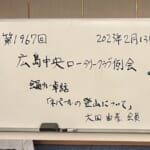 第1967回 2023年2月13日
広島中央ロータリークラブ例会
会員卓話
「ネパールの登山について」
大田 由彦 会員